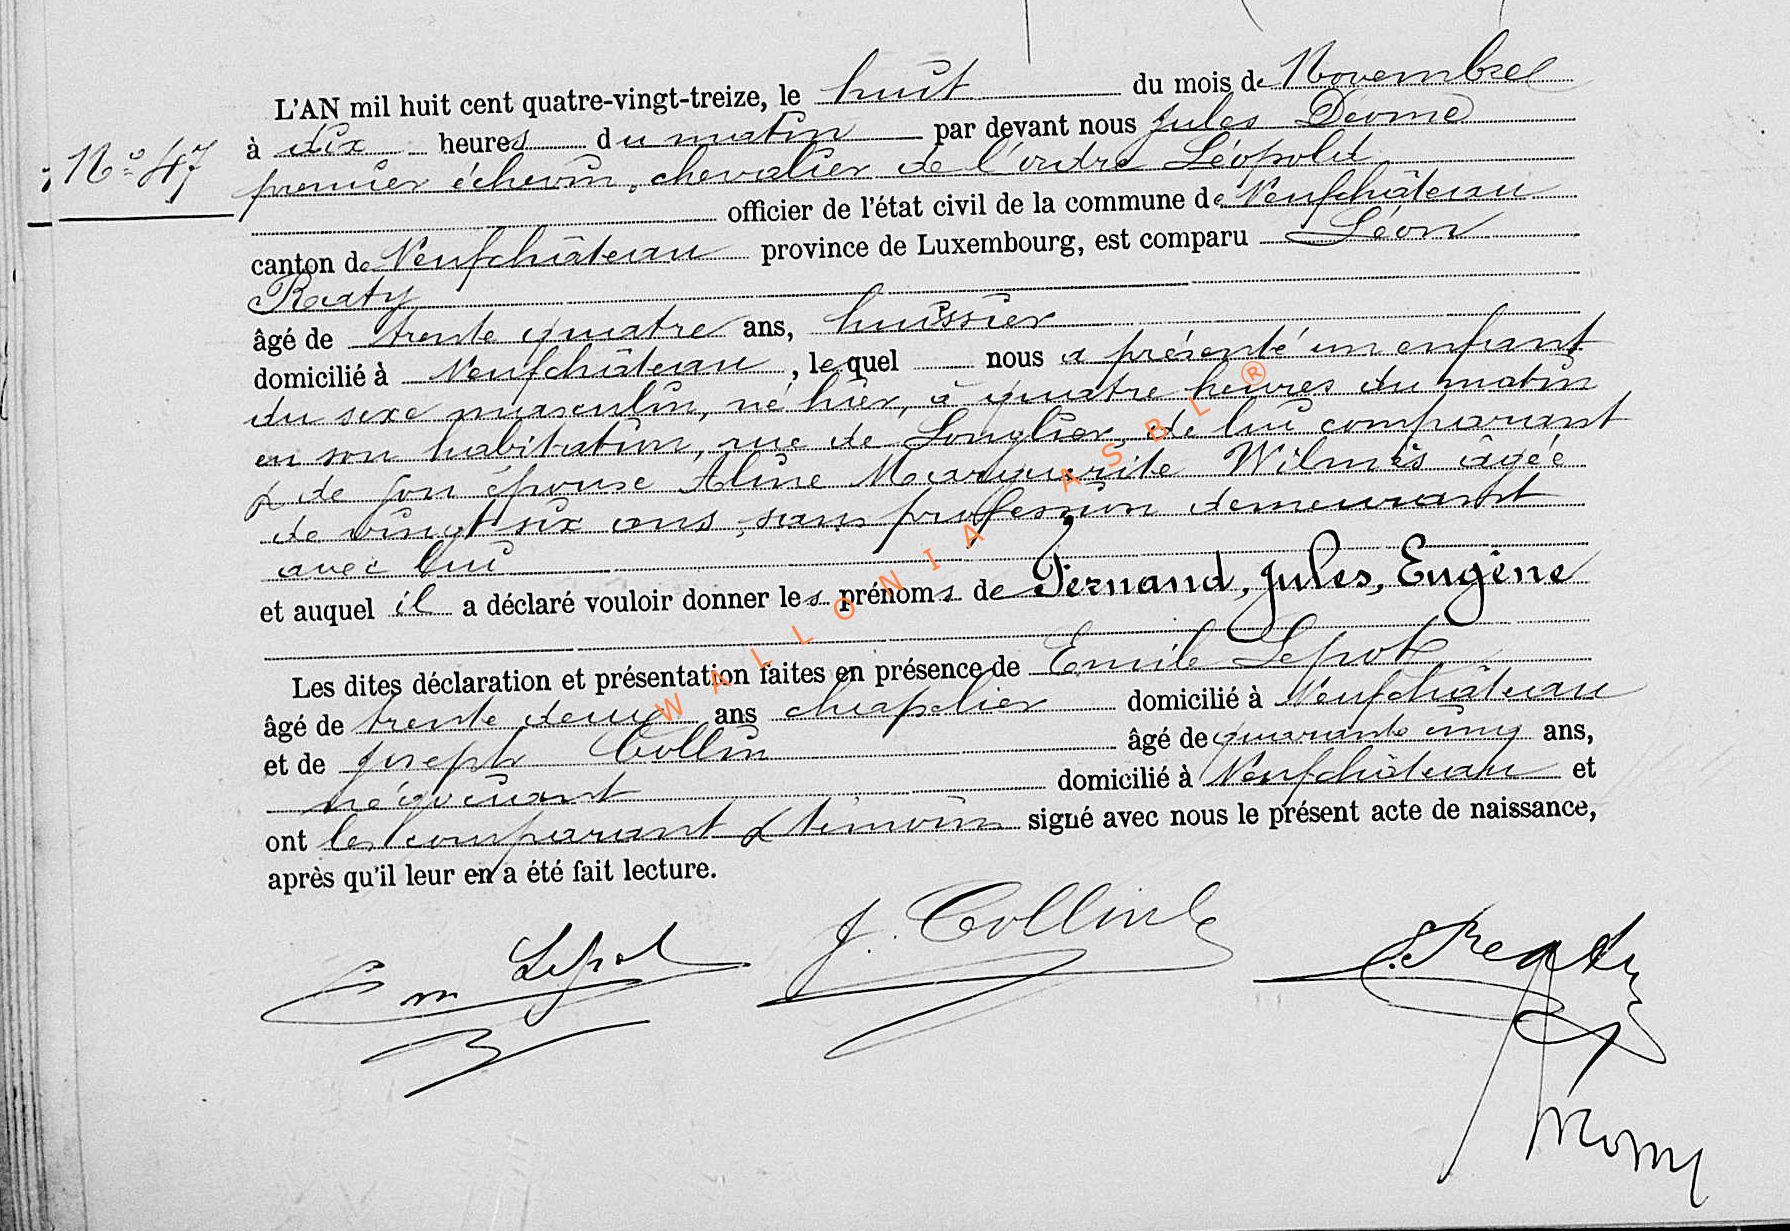 L'AN mil huit cent quatre-vingt-treize, le huit du mois de Novembre
à dix heures du matin par devant nous Jules Déome
N° 47
premier échevin, chevalier de l'ordre Léopold
officier de l'état civil de la commune de Neufchâteau
canton de Neufchâteau province de Luxembourg, est comparu Léon
Raty
âgé de trente quatre ans, huissier
domicilié à Neufchâteau, lequel nous a présenté un enfant
du sexe masculin, né hier, à quatre heures du matin
en son habitation, rue de Longlier, de lui comparant
& de son épouse Aline Marguerite Wilmès âgée
de vingt six ans, sans profession demeurant
avec lui
et auquel il a déclaré vouloir donner les prénoms de Fernand, Jules, Eugène
Les dites déclaration et présentation faites en présence de Emile Lepot
âgé de trente deux ans chapelier domicilié à Neufchâteau
et de Joseph Collin âgé de quarante cinq ans,
négociant domicilié à Neufchâteau et
ont les comparant & témoins signé avec nous le présent acte de naissance,
après qu'il leur en a été fait lecture.
Em Lepot J. Collin L. Raty
WALLONIA ASBL ®